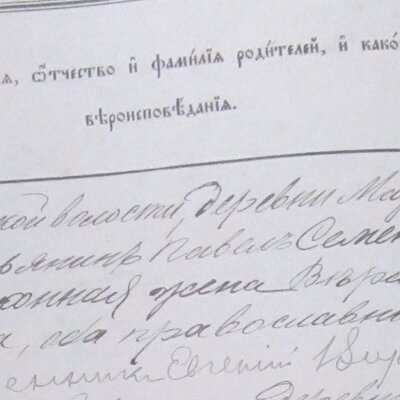 ія, ѿтчество и҆ фами́лїѧ роди́телей, и҆ како́
вѣроисповѣ́данїѧ.
кой волости, деревни Ма
янинъ Павелъ Семен
онная жена Вѣра
а, оба православн
енникъ Евгеній
деревн